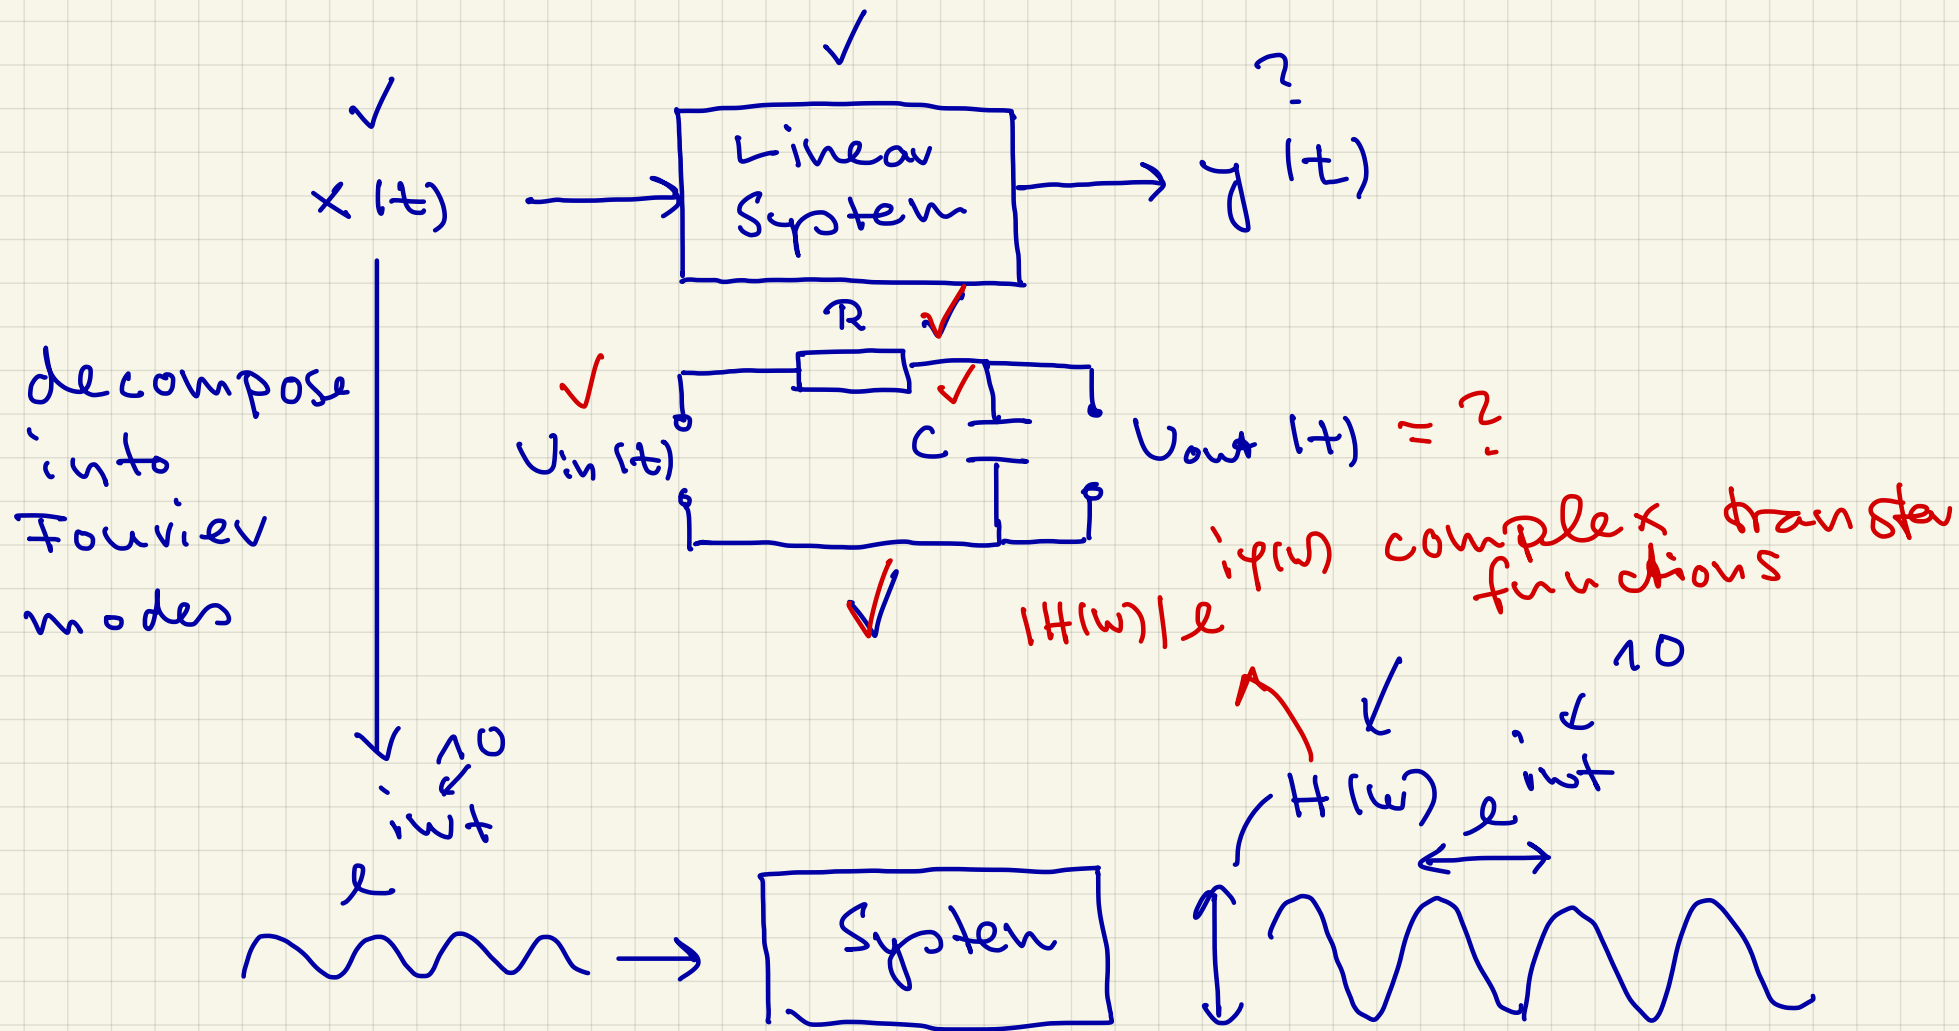 ?
x(t)
Linear
System
y(t)
R
decompose
into
Fourier
modes
U_in(t)
C
U_out(t) = ?
|H(ω)| e^{iφ(ω)} complex transfer
functions
10
10
e^{iωt}
H(ω) e^{iωt}
System